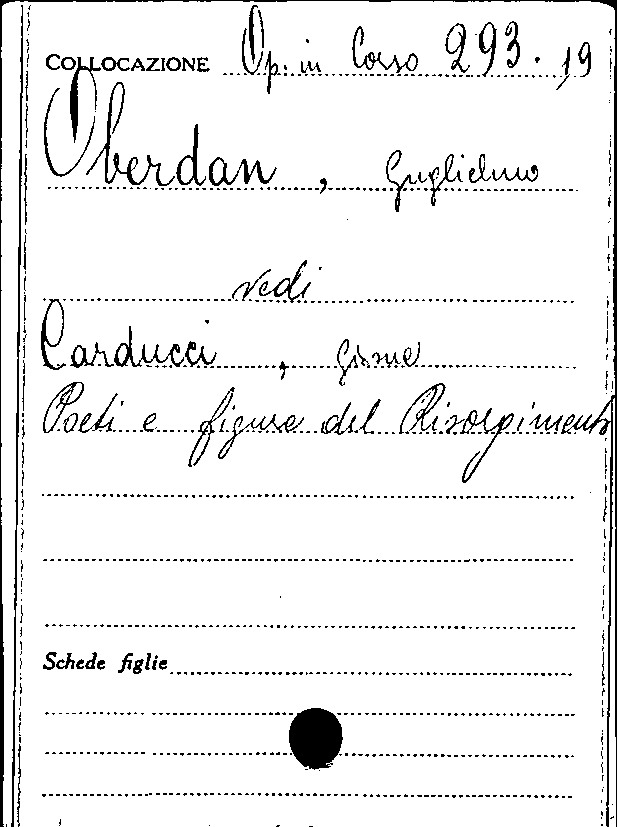 COLLOCAZIONE Op. in Corso 293. 19
Oberdan, Guglielmo
vedi
Carducci, Giosue
Poeti e figure del Risorgimento
Schede figlie